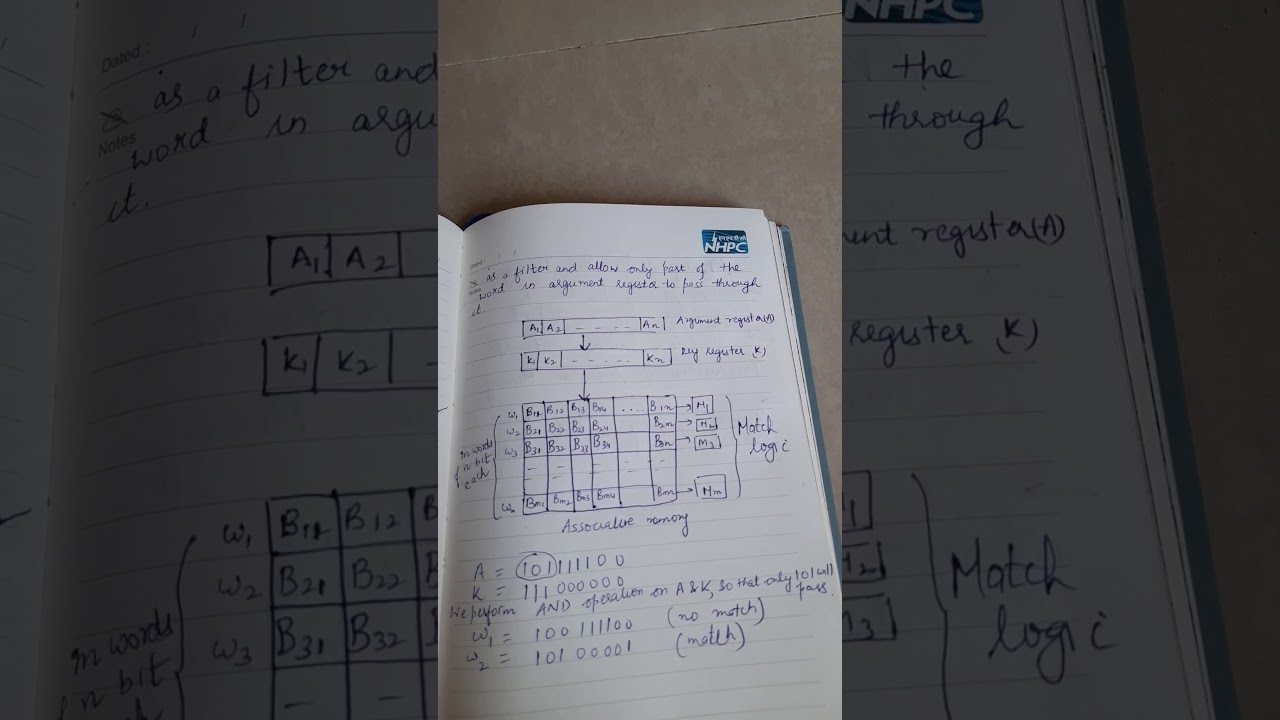 एनएचपीसी
NHPC
Dated : / /
Notes
as a filter and allow only part of the
word in argument register to pass through
it.
A1 A2 - - - - An Argument register(A)
K1 K2 - - - - - Kn Key register (K)
w1 B11 B12 B13 B14 .... B1n M1
w2 B21 B22 B23 B24 B2n M2
w3 B31 B32 B33 B34 B3n M3
m words
of n bit
each
Match
logic
Bm1 Bm2 Bm3 Bm4 Bmn Mm
Associative memory
A = 101111100
K = 111000000
We perform AND operation on A&K, so that only 101 will
pass.
w1 = 100111100 (no match)
w2 = 10100001 (match)